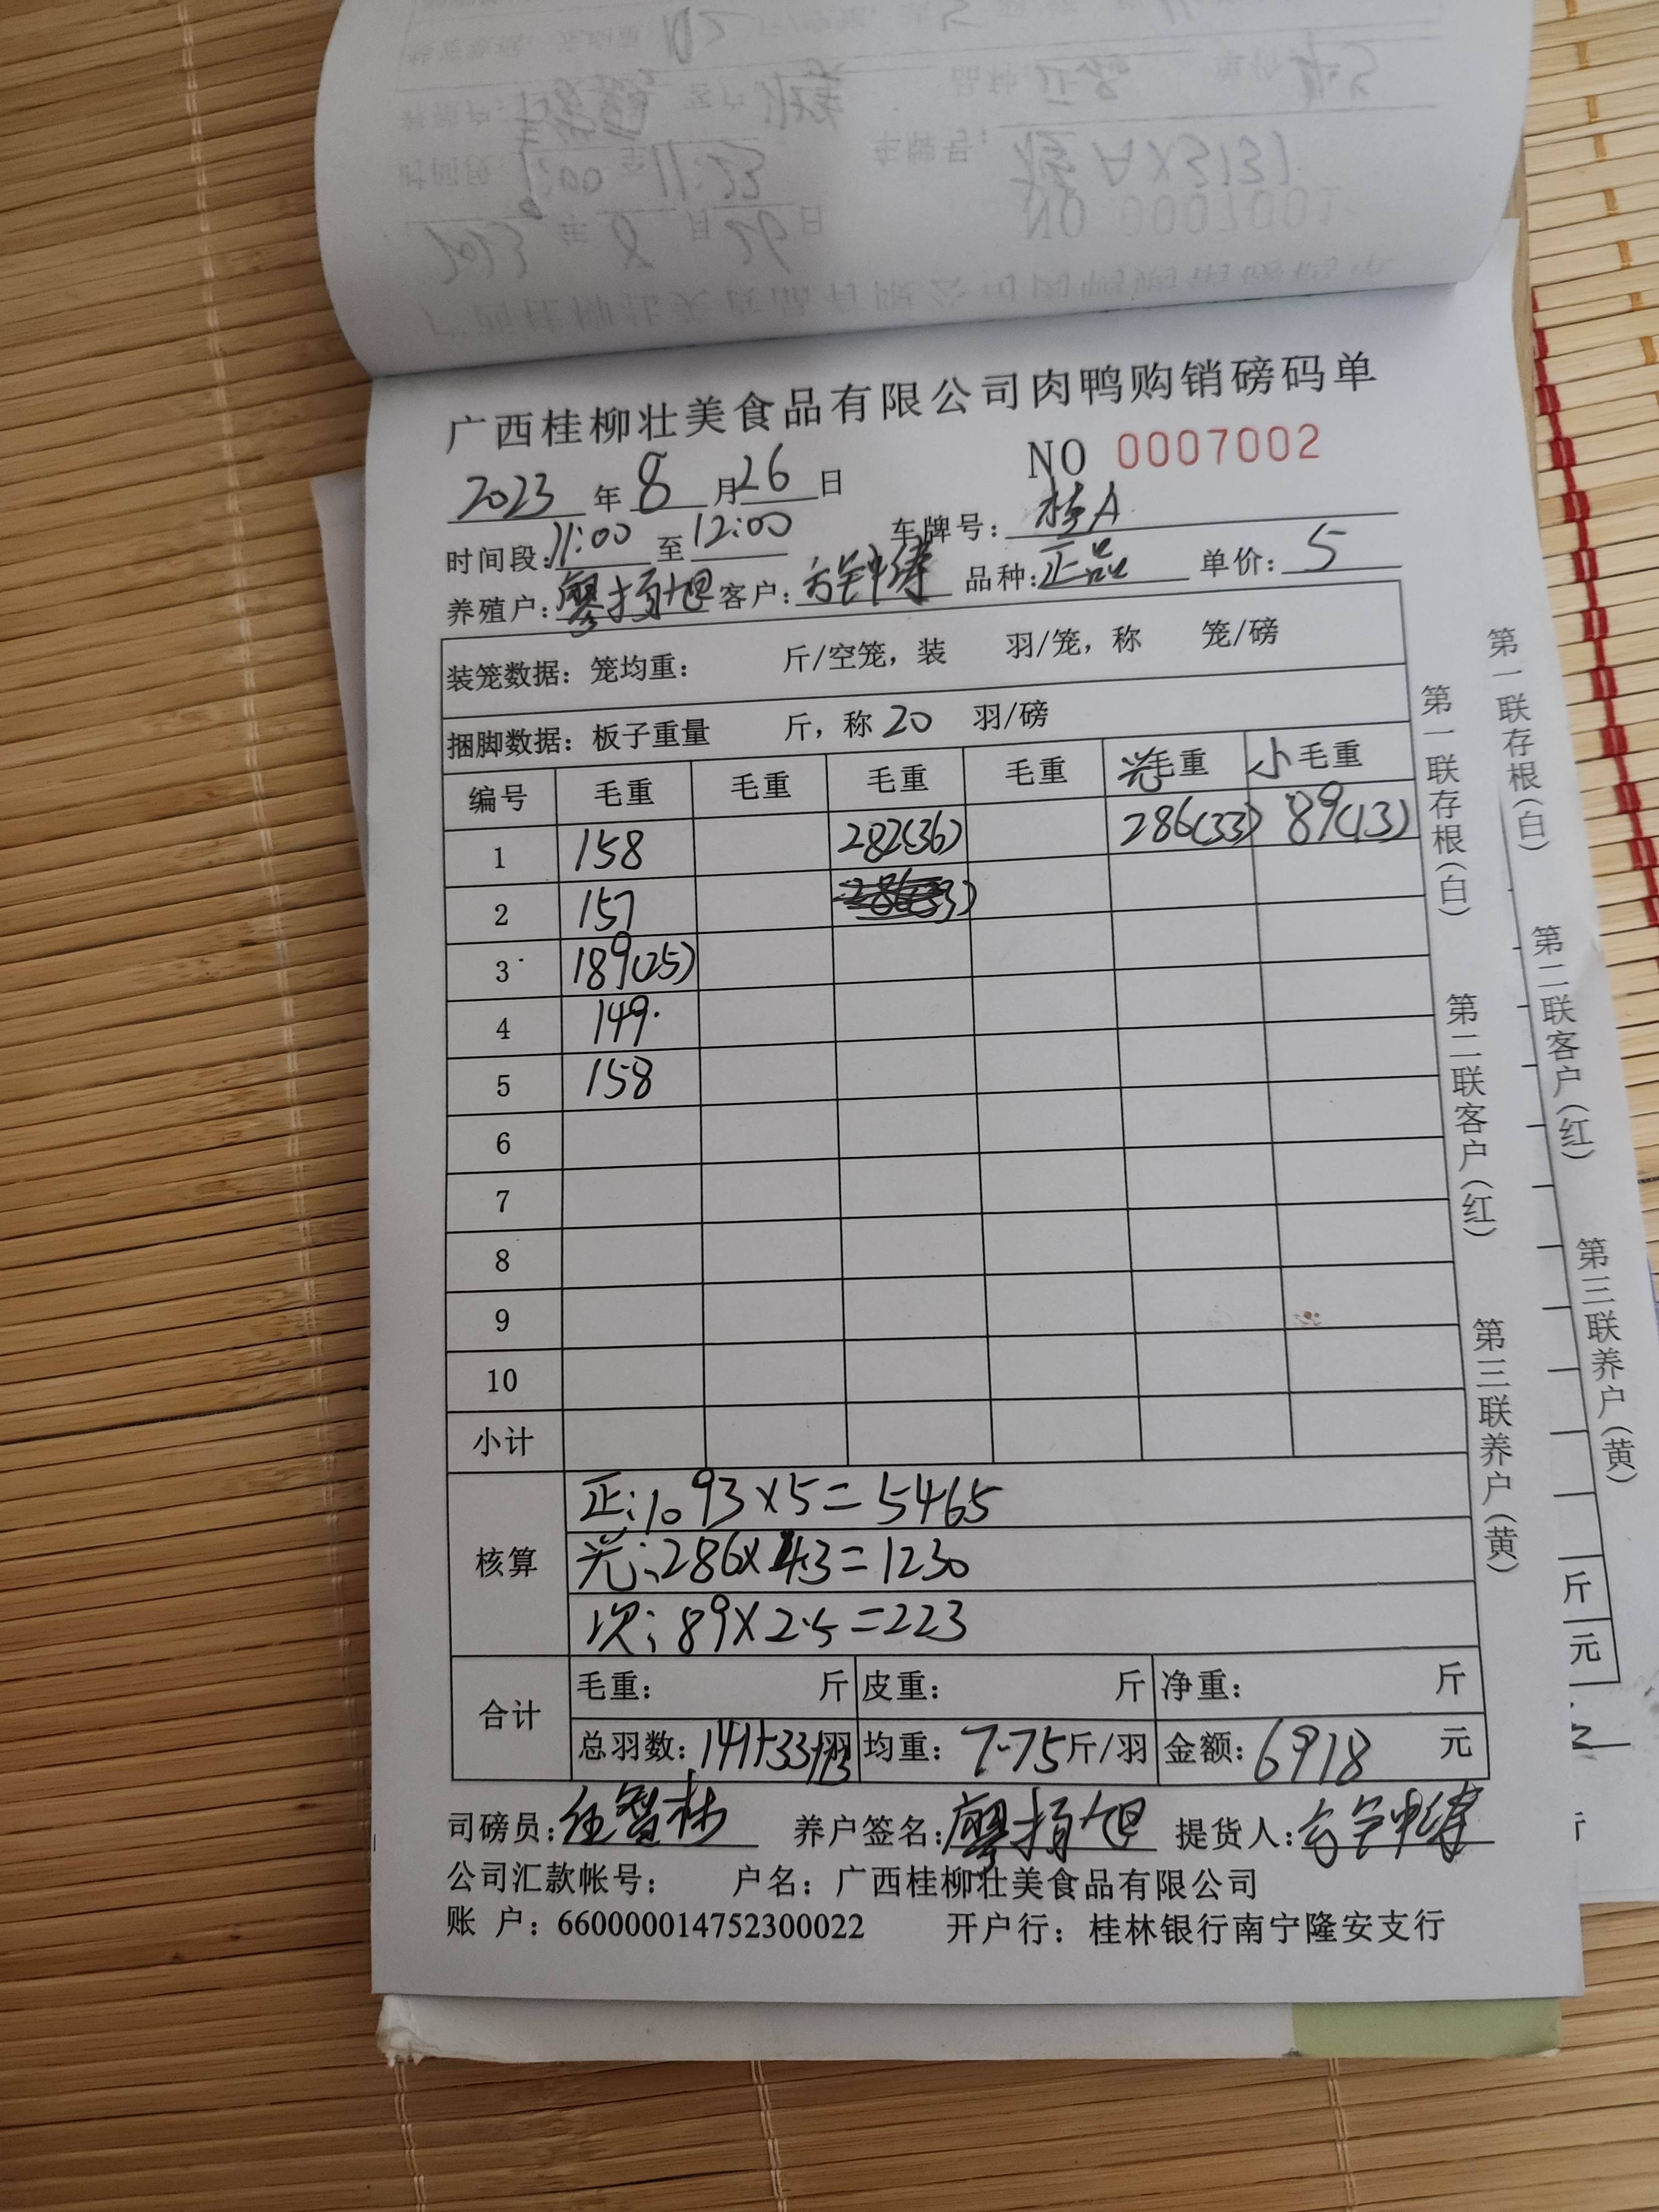 广西桂柳壮美食品有限公司肉鸭购销磅码单
2023 年 8 月 26 日 NO 0007002
时间段: 11:00 至 12:00 车牌号: 桂A
养殖户: 廖扬旭 客户: 方钟涛 品种: 正品 单价: 5
装笼数据: 笼均重: 斤/空笼, 装 羽/笼, 称 笼/磅
捆脚数据: 板子重量 斤, 称 20 羽/磅
编号 毛重 毛重 毛重 毛重 光毛重 小毛重
1 158 282(36) 286(33) 89(13)
2 157
3 189(25)
4 149
5 158
6
7
8
9
10
小计
核算
正: 1093×5=5465
光: 286×4.3=1230
次: 89×2.5=223
合计
毛重: 斤 皮重: 斤 净重: 斤
总羽数: 141+33+13羽 均重: 7.75斤/羽 金额: 6918 元
司磅员: 任智林 养户签名: 廖扬旭 提货人: 方钟涛
公司汇款帐号: 户名: 广西桂柳壮美食品有限公司
账 户: 660000014752300022 开户行: 桂林银行南宁隆安支行
第一联存根(白) 第二联客户(红) 第三联养户(黄)
第一联存根(白) 第二联客户(红) 第三联养户(黄)
斤
元